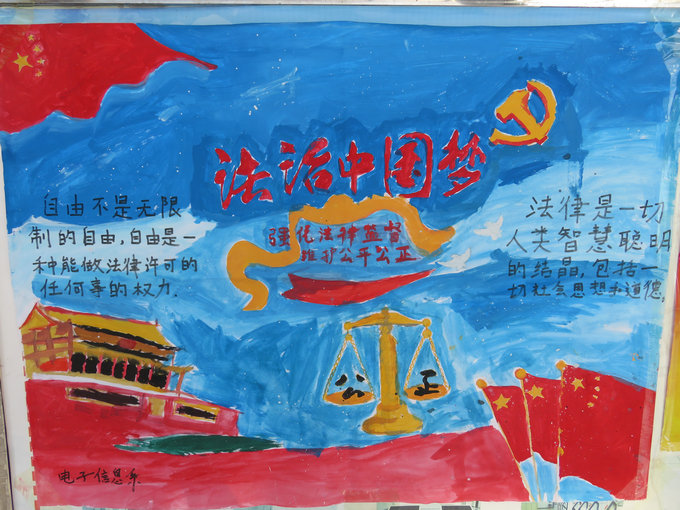 法治中国梦
强化法律监督
维护公平公正
自由不是无限
制的自由，自由是一
种能做法律许可的
任何事的权力．
法律是一切
人类智慧聪明
的结晶，包括一
切社会思想和道德．
公 正
电子信息系